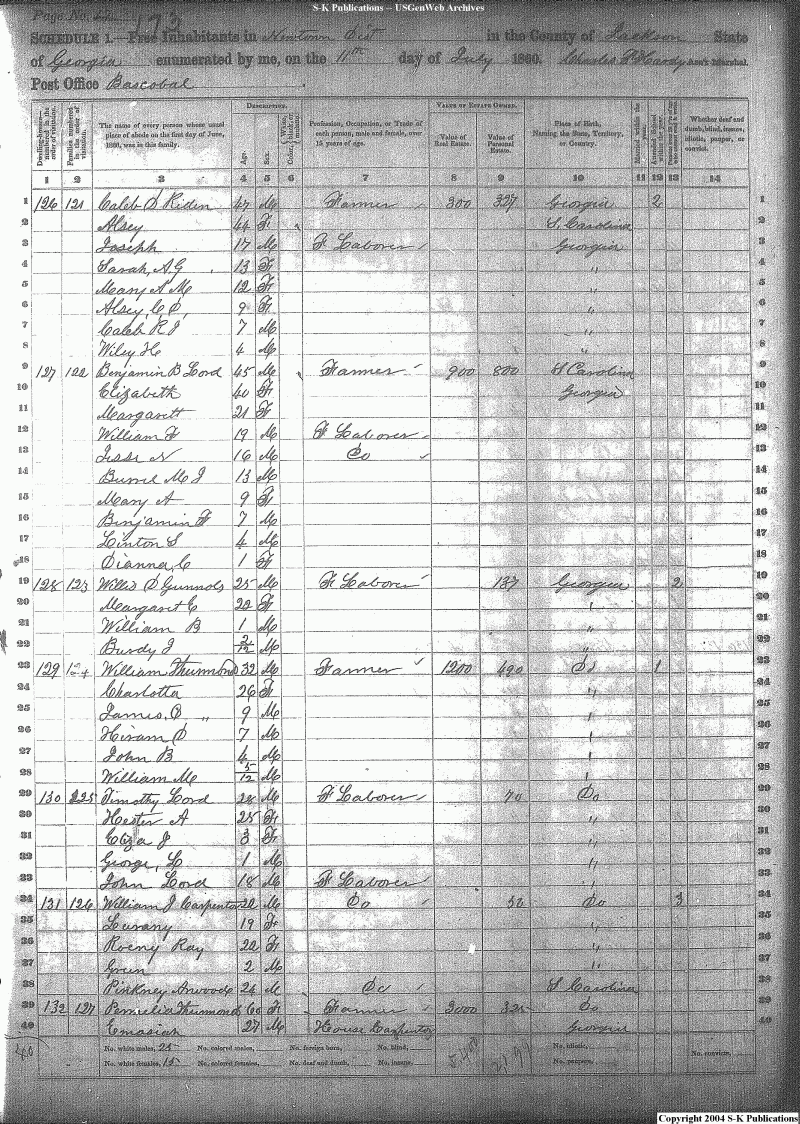 S-K Publications -- USGenWeb Archives
Page No. 173
SCHEDULE 1.—Free Inhabitants in Newtown Dist in the County of Jackson State
of Georgia enumerated by me, on the 11th day of July 1860. Charles H Hardy Ass't Marshal.
Post Office Bascobal
DESCRIPTION. VALUE OF ESTATE OWNED.
Dwelling-houses— numbered in the order of visitation. Families numbered in the order of visitation. The name of every person whose usual place of abode on the first day of June, 1860, was in this family. Age. Sex. Color, White, black, or mulatto. Profession, Occupation, or Trade of each person, male and female, over 15 years of age. Value of Real Estate. Value of Personal Estate. Place of Birth, Naming the State, Territory, or Country. Married within the year. Attended School within the year. Whether deaf and dumb, blind, insane, idiotic, pauper, or convict.
1 2 3 4 5 6 7 8 9 10 11 12 13 14
1 126 121 Caleb S Ridin 47 M Farmer 300 327 Georgia 2 1
2 Alsey 44 F S. Carolina 2
3 Joseph 17 M F Laborer Georgia 3
4 Sarah, A G 13 F " 4
5 Mary A M 12 F " 5
6 Alsey, C C, 9 F " 6
7 Caleb R J 7 M " 7
8 Wiley H 4 M " 8
9 127 122 Benjamin B Lord 45 M Farmer 900 800 S Carolina 9
10 Elizabeth 40 F Georgia 10
11 Margarett 21 F 11
12 William F 19 M F Laborer 12
13 Jesse N 16 M Do 13
14 Burrel M J 13 M 14
15 Mary A 9 F 15
16 Benjamin F 7 M 16
17 Linton S 4 M 17
18 Dianna, C 1 F 18
19 128 123 Willis S Gunnols 25 M F Laborer 137 Georgia 2 19
20 Margaret C 22 F " 20
21 William B 1 M " 21
22 Burdy J 2/12 M " 22
23 129 124 William Thurmond 32 M Farmer 1200 490 Do 1 23
24 Charlotta 26 F " 24
25 James, O " 9 M " 25
26 Hiram O 7 M " 26
27 John B 4 M " 27
28 William M 5/12 M " 28
29 130 125 Timothy Lord 24 M F Laborer 70 Do 29
30 Hester A 25 F " 30
31 Eliza J 3 F " 31
32 George, L 1 M " 32
33 John Lord 18 M F Laborer " 33
34 131 126 William J Carpenter 22 M Do 50 Do 3 34
35 Lurany 19 F " 35
36 Roeny Ray 22 F " 36
37 Green 2 M " 37
38 Pinkney Arwood 24 M Do S Carolina 38
39 132 127 Permelia Thurmond 60 F Farmer 3000 325 Do 39
40 Emasiah 27 M House Carpenter Georgia 40
40 No. white males, 25 No. colored males, No. foreign born, No. blind, No. idiotic,
No. white females, 15 No. colored females, No. deaf and dumb, No. insane, No. paupers, No. convicts,
5400
Copyright 2004 S-K Publications